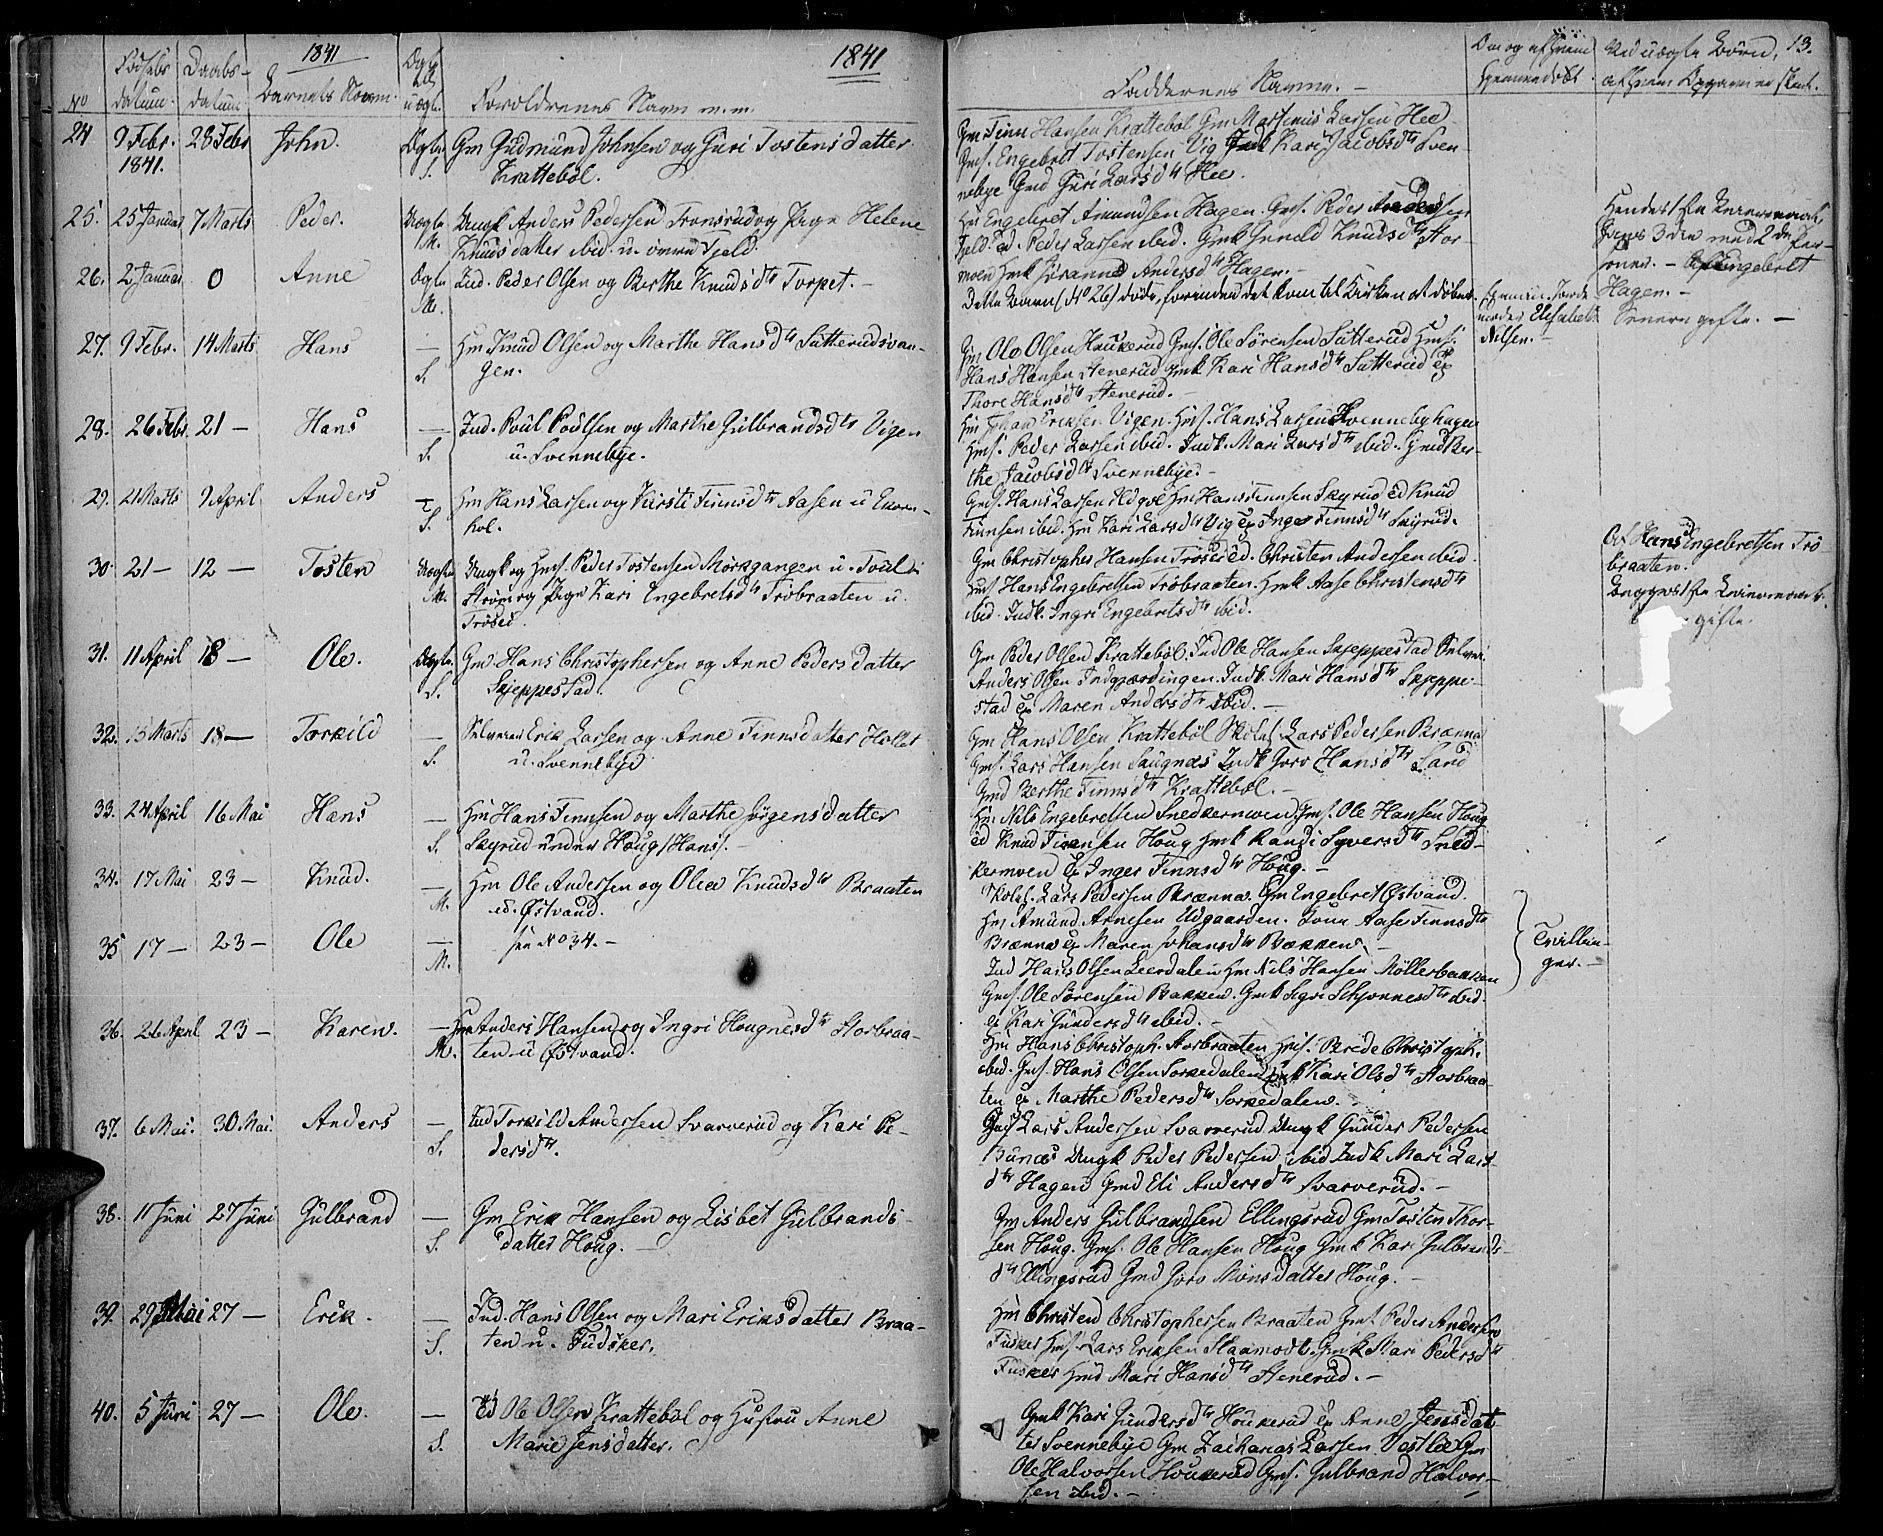 1841
1841
13.
No
Fødsels datum.
Daabs datum
Barnets Navn.
Ægte ell. uægte.
Forældrenes Navn m.m.
Faddernes Navne. —
Om og af hvem hjemmedøbt.
Ved uægte Børn, af hvem Opgaven er skeet.
24 9 Febr. 1841. 28 Febr John. Ægte S. Gm Gudmund Johnsen og Guri Tostensdatter
Krattebøl.
Gm Finn Hansen Krattebøl Gm Martinus Larsen Hee
Gms. Engebret Tostensen Vig Kari Jacobsdtr Sven-
nebye Gmd Guri Larsdtr Hee.
25. 25 Januar 7 Marts Peder. Uægte M. Ungk Anders Pedersen Tronsrud og Pige Helene
Knudsdatter ibid. u.
Engebret Amundsen Hagen. Gms. Peder
Peder Larsen ibid. Gmk Gunild Knudsdtr Mor-
moen Andersdtr Hagen. —
Engebret
Hagen. —
26. 2 Januar 0 Anne Ægte M. Ind. Peder Olsen og Berthe Knudsdtr Torpet. —
Dette Barn (No 26) døde, forinden det kom til Kirken at døbes.
moder Elisabeth
Nilsen. —
Senere gifte. —
27. 9 Febr. 14 Marts Hans — S. Hm Knud Olsen og Marthe Hansdtr Sutterudsvan-
gen.
Gm Ole Olsen Houkerud Gms. Ole Sørensen Sutterud Hms.
Hans Hansen Stenerud Gmk Kari Hansdtr Sutterud Eg
Thore Hansdtr Stenerud. —
28. 26 Febr. 21 — Hans — S. Ind. Poul Poulsen og Marthe Gulbrandsdtr Vigen
u. Svennebye.
Hm Johan Eriksen Vigen. Hms. Hans Larsen Svennebyhagen
Hms. Peder Larsen ibid. Indk. Mari Larsdtr ibid. Gmd Ber-
the Jacobsdtr Svennebye. —
29. 21 Marts 9 April Anders — S. Hm Hans Larsen og Kirsti Finnsdtr Aasen u Ekorn-
hol.
Gms. Hans Larsen Hm Hans Finnsen Skyrud Ed Knud
Finnsen ibid. Hm Kari Larsdtr Vig Eg Inger Finnsdtr Skyrud.
30. 21 — 12 — Tosten Uægte M. Ungk og Hms. Peder Tostensen Mørkgangen u.
Strøm og Pige Kari Engebretsdtr Trøbraaten u.
Trøsed.
Gm Christopher Hansen Trøsed Ed. Christen Andersen ibid.
Hms Hans Engebretsen Trøbraaten. Hmk Aase Christensdtr
ibid. Indk. Ingri Engebretsdtr ibid.
Af Hans Engebretsen Trø-
braaten.
gifte.
31. 11 April 18 — Ole. Ægte. S. Gm Hans Christophersen og Anne Pedersdatter
Skjeppestad.
Gm Peder Olsen Krattebøl. Ind Ole Hansen Skjeppestad Selvei.
Anders Olsen Indgjærdingen. Indk. Mari Hansdtr Skjeppe-
stad Eg Maren Andersdtr ibid. —
32. 15 Marts 18 — Torkild — S. Selveier Erik Larsen og Anne Finnsdatter Hollet
u. Svennebye
Gm Hans Olsen Krattebøl Skolel. Lars Pedersen Brænna
Gms. Lars Hansen Saugnæs Indk Joro Hansdtr Sand
Gmd Berthe Finnsdtr Krattebøl. —
33. 24 April 16 Mai Hans — S. Hm Hans Finnsen og Marthe Jørgensdatter
Skyrud under Houg /Hans/. —
Hm Nils Engebretsen Snedkermoen. Gms. Ole Hansen Houg
Ed Knud Finnsen Houg Hmk Randi Syversdtr Sned-
kermoen Eg Inger Finnsdtr Houg. —
34. 17 Mai 23 — Knud. — M. Hm Ole Andersen og Olea Knudsdtr Braaten
u. Østvand.
Skolel. Lars Pedersen Brænna. Gm Engebret Østvand.
Hm Amund Arnesen Udgaarden. Aase Finnsdtr
Brænna Eg Maren Johansdtr Bækken. —
35 17 — 23 — Ole — M. see No 34. —
Ind Hans Olsen Leerdalen Hm Nils Hansen Møllerbakken
Gms. Ole Sørensen Bakken. Gmk Sigri Schjønnesdtr ibid.
Eg Kari Gundersdtr ibid. —
Tvillin-
ger. —
36. 26 April 23 — Karen. — M. Hm Anders Hansen og Ingri Hougnesdtr Storbraa-
ten u Østvand.
Hm Hans Christoph. Storbraaten Hms. Brede Christoph.
ibid. Gms. Hans Olsen Sorkedalen Gmk Kari Olsdtr Storbraa-
ten Eg Marthe Pedersdtr Sorkedalen.
37. 6 Mai. 30 Mai. Anders — S. Ind Torkild Andersen Svarverud og Kari Pe-
dersdtr.
Gms Lars Andersen Svarverud Ungk Gunder Pedersen
Bunæs Ungk Peder Pedersen ibid Indk Mari Lars-
dtr Hagen Gmd Eli Andersdtr Svarverud. —
38. 11 Juni 27 Juni Gulbrand — S. Gm Erik Hansen og Lisbet Gulbrands-
datter Houg. —
Gm Anders Gulbrandsen Ellingsrud Gm Tosten Thor-
sen Houg. Gms. Ole Hansen Houg Gmk Kari Gulbrands-
dtr Ellingsrud Gmd Joro Monsdatter Houg. —
39. 29 Mai 27 — Erik. — S. Ind. Hans Olsen og Mari Eriksdatter Braa-
ten u. Fudsker.
Hm Christen Christophersen Braaten Gms Peder Andersen
Fusker Hms. Lars Eriksen Slaamodt. Gmk Mari Pedersdtr
Fusker Hmd Mari Hansdtr Stenerud. —
40. 5 Juni 27 — Ole. — S. Ed Ole Olsen Krattebøl og Hustru Anne
Marie Jensdatter.
Gmk Kari Gundersdtr Houkerud Eg Anne Jensdat-
ter Svennebye Gm Zacharias Larsen Vestlie Gm
Ole Halvorsen Houkerud Gms. Gulbrand Halvor-
sen ibid. —